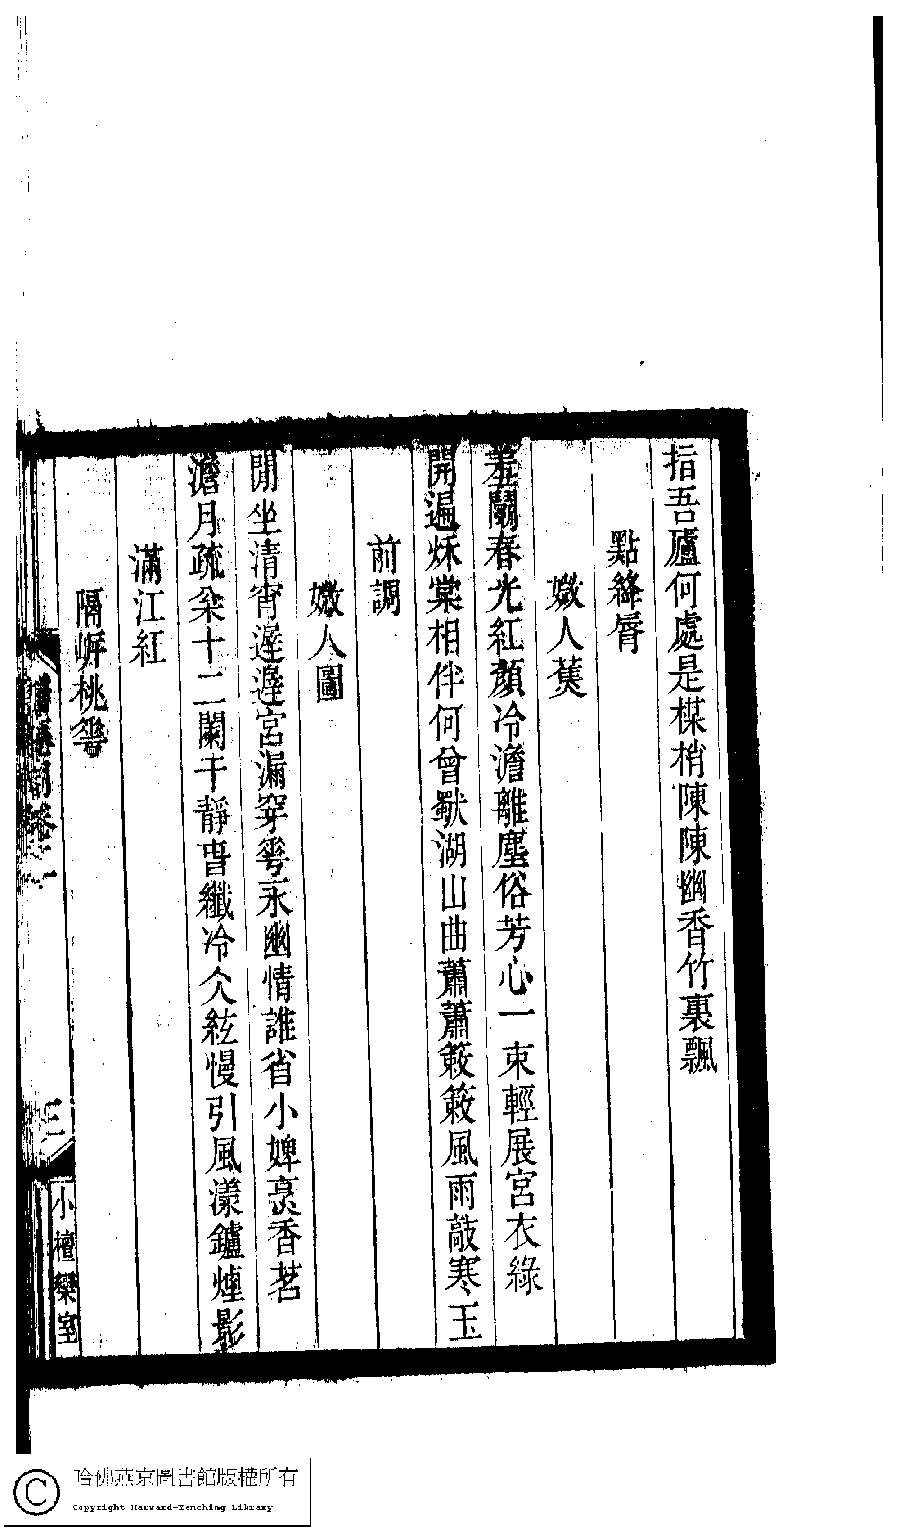 指吾廬何處是楳梢陳陳幽香竹裏飄
點絳脣
媺人蕉
羞鬭春光紅顏冷澹離塵俗芳心一束輕展宮衣綠
開遍秌棠相伴何曾歜湖山曲蕭蕭簌簌風雨敲寒玉
前調
媺人圖
閒坐清宵遲遲宮漏穿雩永幽情誰省小婢烹香茗
澹月疏朵十二闌干靜香纖冷仌絃慢引風漾鑪煙影
滿江紅
隔岸桃雩
三
小檀欒室
哈佛燕京圖書館版權所有
Copyright Harvard-Yenching Library